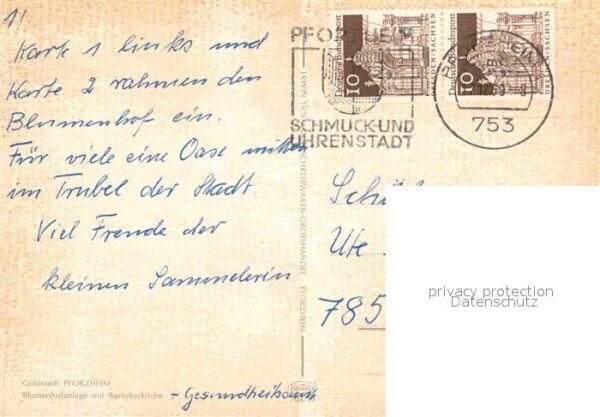 1/
Karte 1 links und
Karte 2 rahmen den
Blumenhof ein.
Für viele eine Oase mitten
im Trubel der Stadt.
Viel Freude der
kleinen Sammelerin
Goldstadt PFORZHEIM
Blumenhofanlage mit Barfüßerkirche
- Gesundheitsamt
SCHREIBWAREN-GROSSHANDEL PFORZHEIM
PFORZHEIM
SCHMUCK-UND
UHRENSTADT
Deutsche Bundespost
10
DRESDEN/SACHSEN
Deutsche Bundespost
10
DRESDEN/SACHSEN
753
Ute
785
privacy protection
Datenschutz